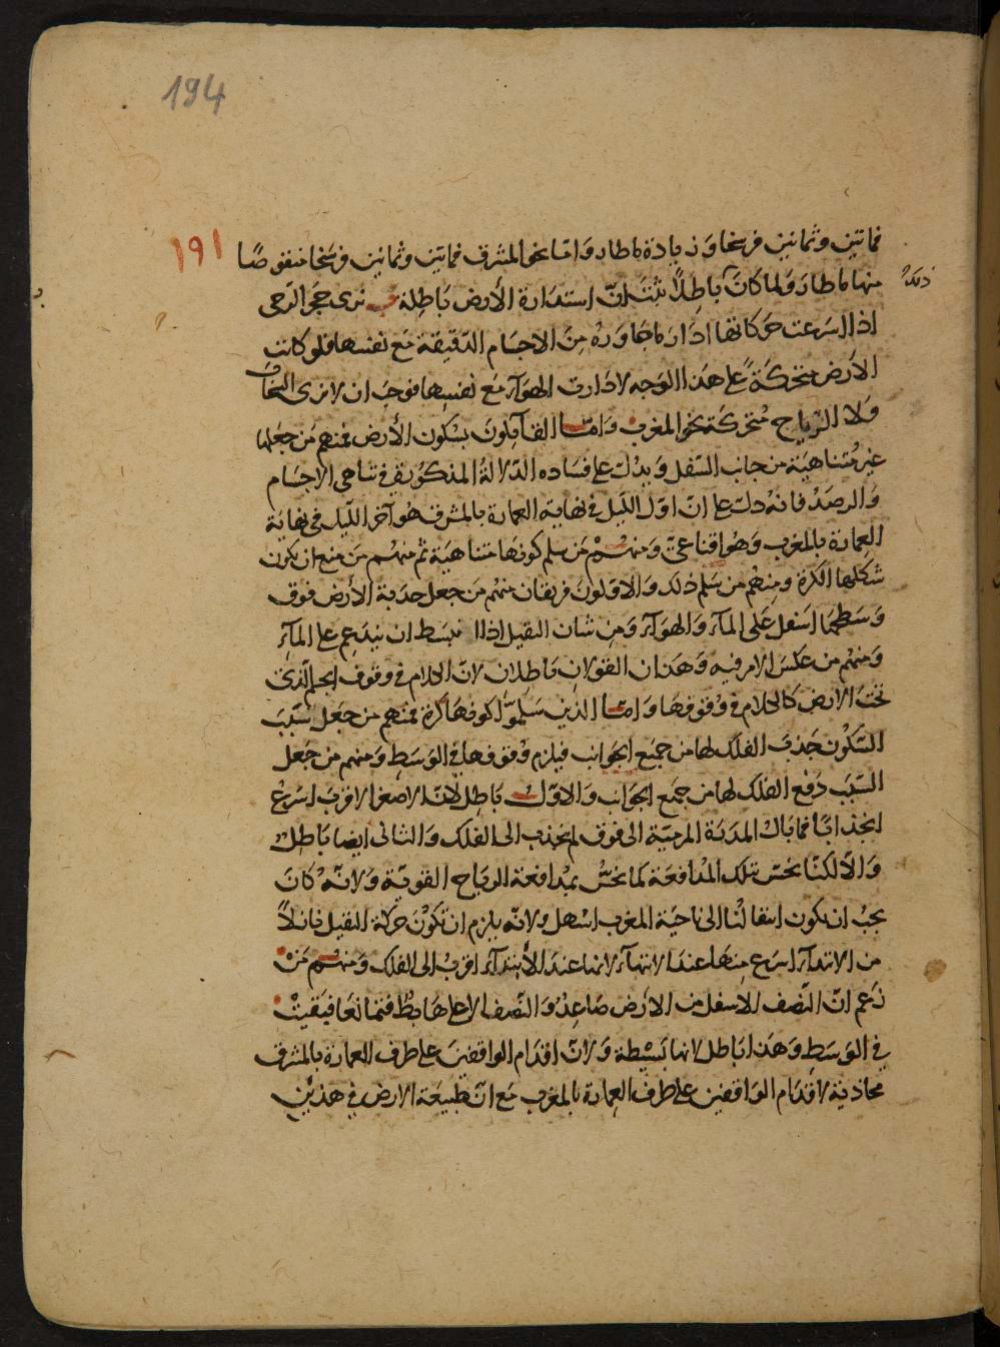 194
١٩١
فمائتين وثمانين فرسخا وزيادة ما طار واما نحو المشرق فمائتين وثمانين فرسخا منقوصًا
منها ما طار ولما كان باطِلًا ثبت ان استدارة الأرض باطلة نرى حجر الرحى
ذلك
اذا اسرعت حركاتها ادار ما جاوره من الاجسام الدقيقة مع نفسها فلو كانت
الأرض متحركة على هذا الوجه لادارت الهوآء مع نفسها فوجب ان لا نرى السحاب
ولا الرياح متحركة نحو المغرب واما القآيلون بسكون الأرض فمنهم من جعلها
غير متناهية من جانب السفل ويدل على فساده الدلالة المذكورة في تناهي الاجسام
والرصد فانه دل على ان اول الليل في نهاية العمارة بالمشرق هو آخر الليل في نهاية
العمارة بالمغرب وهو اقناعي ومنهم من سلم كونها متناهية ثم منهم من منع ان يكون
شكلها الكرة ومنهم من سلم ذلك والاولون فريقان منهم من جعل حدبة الأرض فوق
وسطحها اسفل على المآء والهوآء ومن شان الثقيل اذا انبسط ان يندعم على المآء
ومنهم من عكس الامر فيه وهذان القولان باطلان لان الكلام في وقوف الجسم الذى
تحت الارض كالكلام في وقوفها واما الذين سلموا كونها كرة فمنهم من جعل سبب
السكون جذب الفلك لها من جميع الجوانب فيلزم وقوفها في الوسط ومنهم من جعل
السبب دفع الفلك لها من جميع الجوانب والاول باطل لان الاصغر الاقرب اسرع
انجذابًا فما بال المدرة المرمية الى فوق لم ينجذب الى الفلك والثانى ايضا باطل
والا لكنا نحس بتلك المدافعة كما نحس بمدافعة الرياح القوية ولانه كان
يجب ان يكون انتقالنا الى ناحية المغرب اسهل ولانه يلزم ان تكون حركة الثقيل نازلًا
من الابتدآء اسرع منها عند الانتهآء لانها عند الأبتدآء اقرب الى الفلك ومنهم من
زعم ان النصف الاسفل من الارض صاعد والنصف الاعلى هابط فتمانعا فبقيت
في الوسط وهذا باطل لانها بسيطة ولان اقدام الواقفين على طرف العمارة بالمشرق
محاذية لاقدام الواقفين على طرف العمارة بالمغرب مع ان طبيعة الارض في هذين